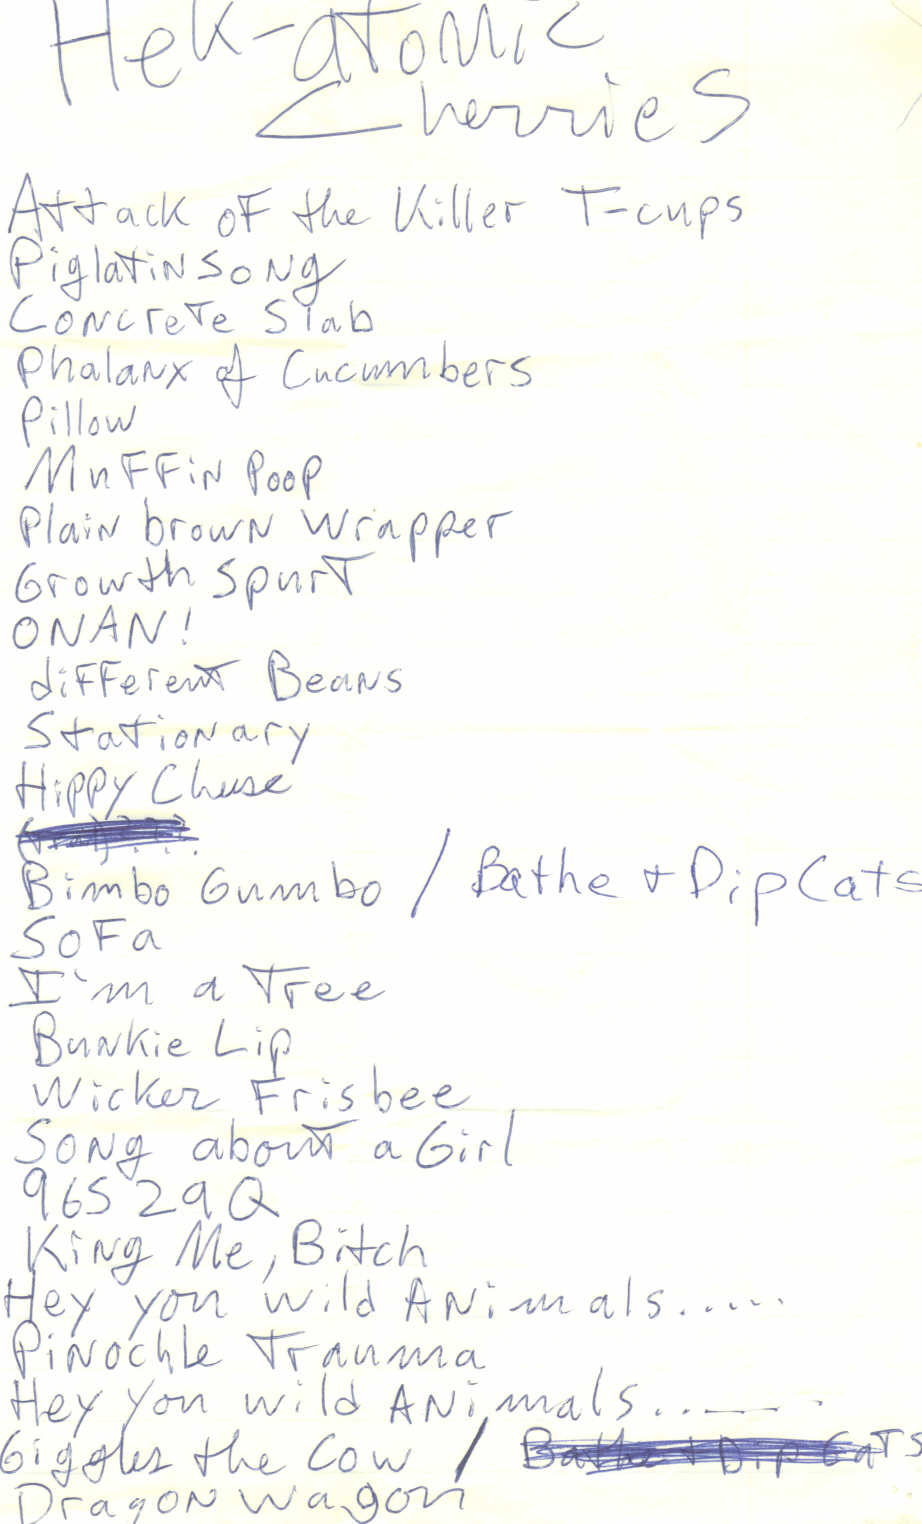 Hek-atomic
Cherries
Attack of the Killer T-cups
Piglatin Song
Concrete Slab
Phalanx of Cucumbers
Pillow
Muffin Poop
Plain brown wrapper
Growth Spurt
ONAN!
different Beans
Stationary
Hippy Cheese
Bimbo Gumbo / Bathe + Dip Cats
Sofa
I'm a Tree
Bunkie Lip
Wicker Frisbee
Song about a Girl
96S29Q
King Me, Bitch
Hey you wild ANimals.....
Pinochle Trauma
Hey you wild ANimals.......
Giggles the Cow / Bathe + Dip Cats
Dragon wagon